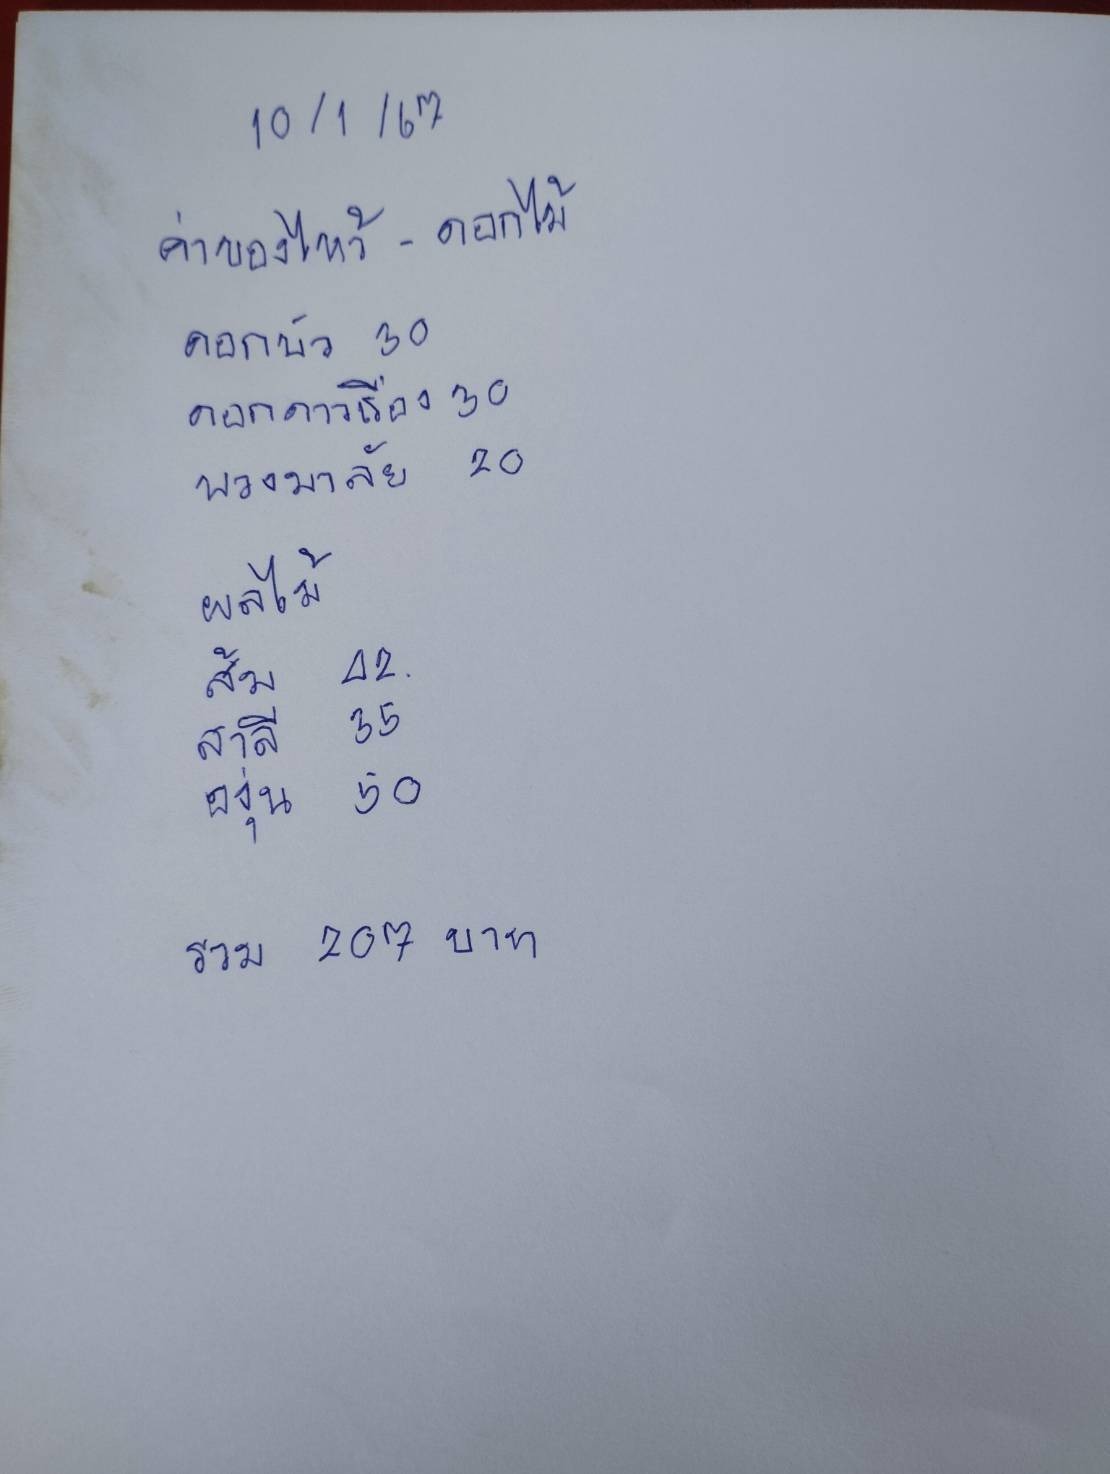 10/1/67
ค่าของไหว้ - ดอกไม้
ดอกบัว 30
ดอกดาวเรือง 30
พวงมาลัย 20
ผลไม้
ส้ม 42.
สาลี 35
องุ่น 50
รวม 207 บาท